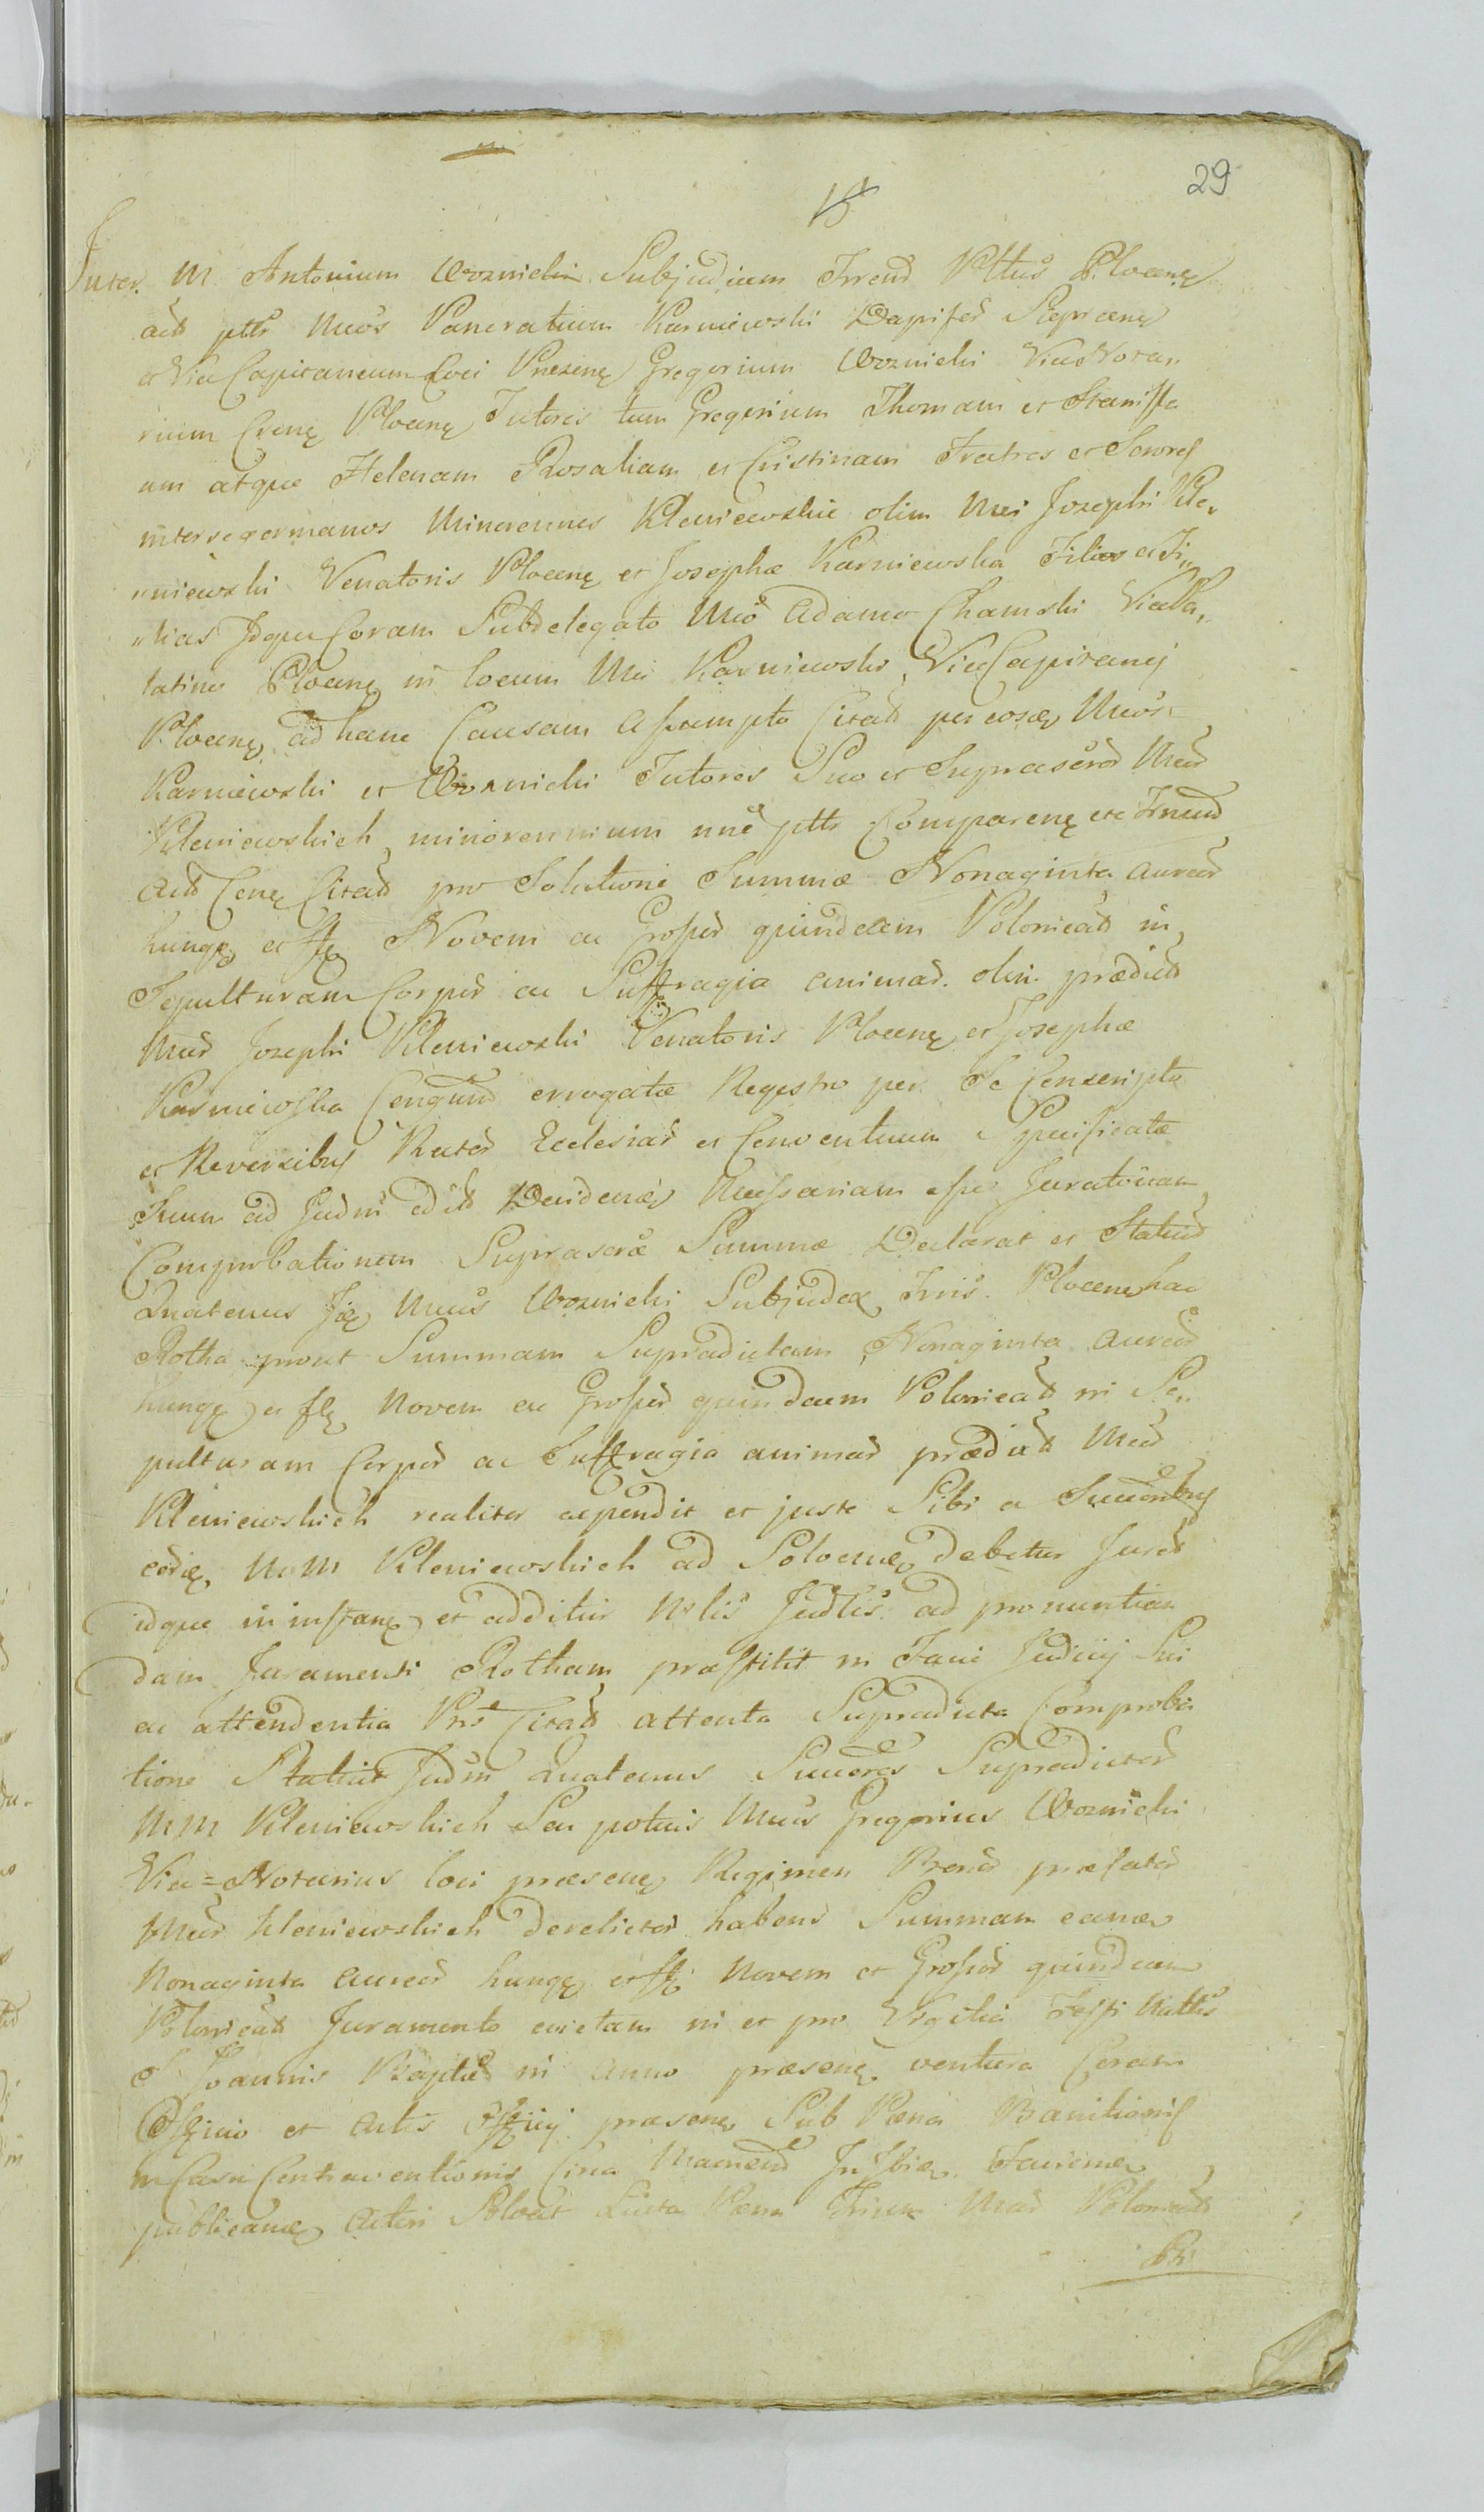 29
Inter M. Antonium Woznicki Subjudicem Trend Pltus Plocen
act ptts Mcos Pancratium Karniewski Dapifer Sieprcen
et Vice Capitaneum Loci Presenę Gregorium Woznicki Vice Nota„
rium Plocenę Tutores tum Gregorium Thomam et Stanisla
um atque Helenam Rosaliam et Cristinam Fratres et Sorores
interse germanos Minorennes Kleniewskie olim Mci Josephi Kle„
„niewski Venatoris Plocenę et Josepha Karniewska Filios et Fi„
„lias Idque Coram Subdelegato Mco Adamo Chamski Vice Pa„
latino Plocenę in locum Mci Karniewski Vice Capitanej
Plocenę ad hanc Causam Assumpto Citat per eosq Mcos
Karniewski et Woznicki Tutores Suo et Suprascrod Mcod
Kleniewskich minorennium noe ptts Comparenę etc
act Citat pro Solutione Summæ Nonaginta Aureor
hungę et ffę Novem ac Grossor quindecim Polonicat in
Sepulturam Corpor ac Suffragia animar. olim prædict
Mcor Josephi Kleniewski Venatoris Plocenę et Josephæ
Karniewska Conjund errogatæ Regestro per Se Conscripto
et Reversibus Rector Ecclesiar et Conventuum Specificatæ
Suum ad Necssariam esse Juratoriam
Comprobationem Suprascræ Summæ Declarat et Statuid
Quatenus Mcus Woznicki Subjudex Tris. Plocen hac
Rotha prout Summam Supradictam Nonaginta Aureor
hungę et flę Novem ac Grossor quindecim Polonicat in Se„
pulturam Corpor ac Suffragia animar prædict Mcor
Kleniewskich realiter expendit et juste Sibi a Succesoribus
eorq MM Kleniewskich ad Solvenq debetur Juret
idque in instanę et additur ad pronuntian
dam Juramenti Rotham præstitit in Facie Judicij Sui
ac attendentia Pris Citat attenta Supradicta Comproba
tione Statuit Judm Quatenus Succores Supradictor
MM Kleniewskich Seu potius Mcus Gregorius Woznicki
Vice=Notarius loci præsenę Regimen Bonor præfator
Mcor Kleniewskich derelictor habens Summam eamq
Nonaginta Aureor hungę et ffę Novem et Grossor quindecim
Polonicat Juramento evictam in et pro Vigilia Festi Natts
S Joannis Baptæ in Anno præsenę ventura Coram
Officio et Actis Officij præsenę Sub Pæna Banitionis
in Casu Contraventionis Circa
publicanq Actori Solvat Luita Pæna Trium Mar Polonicat